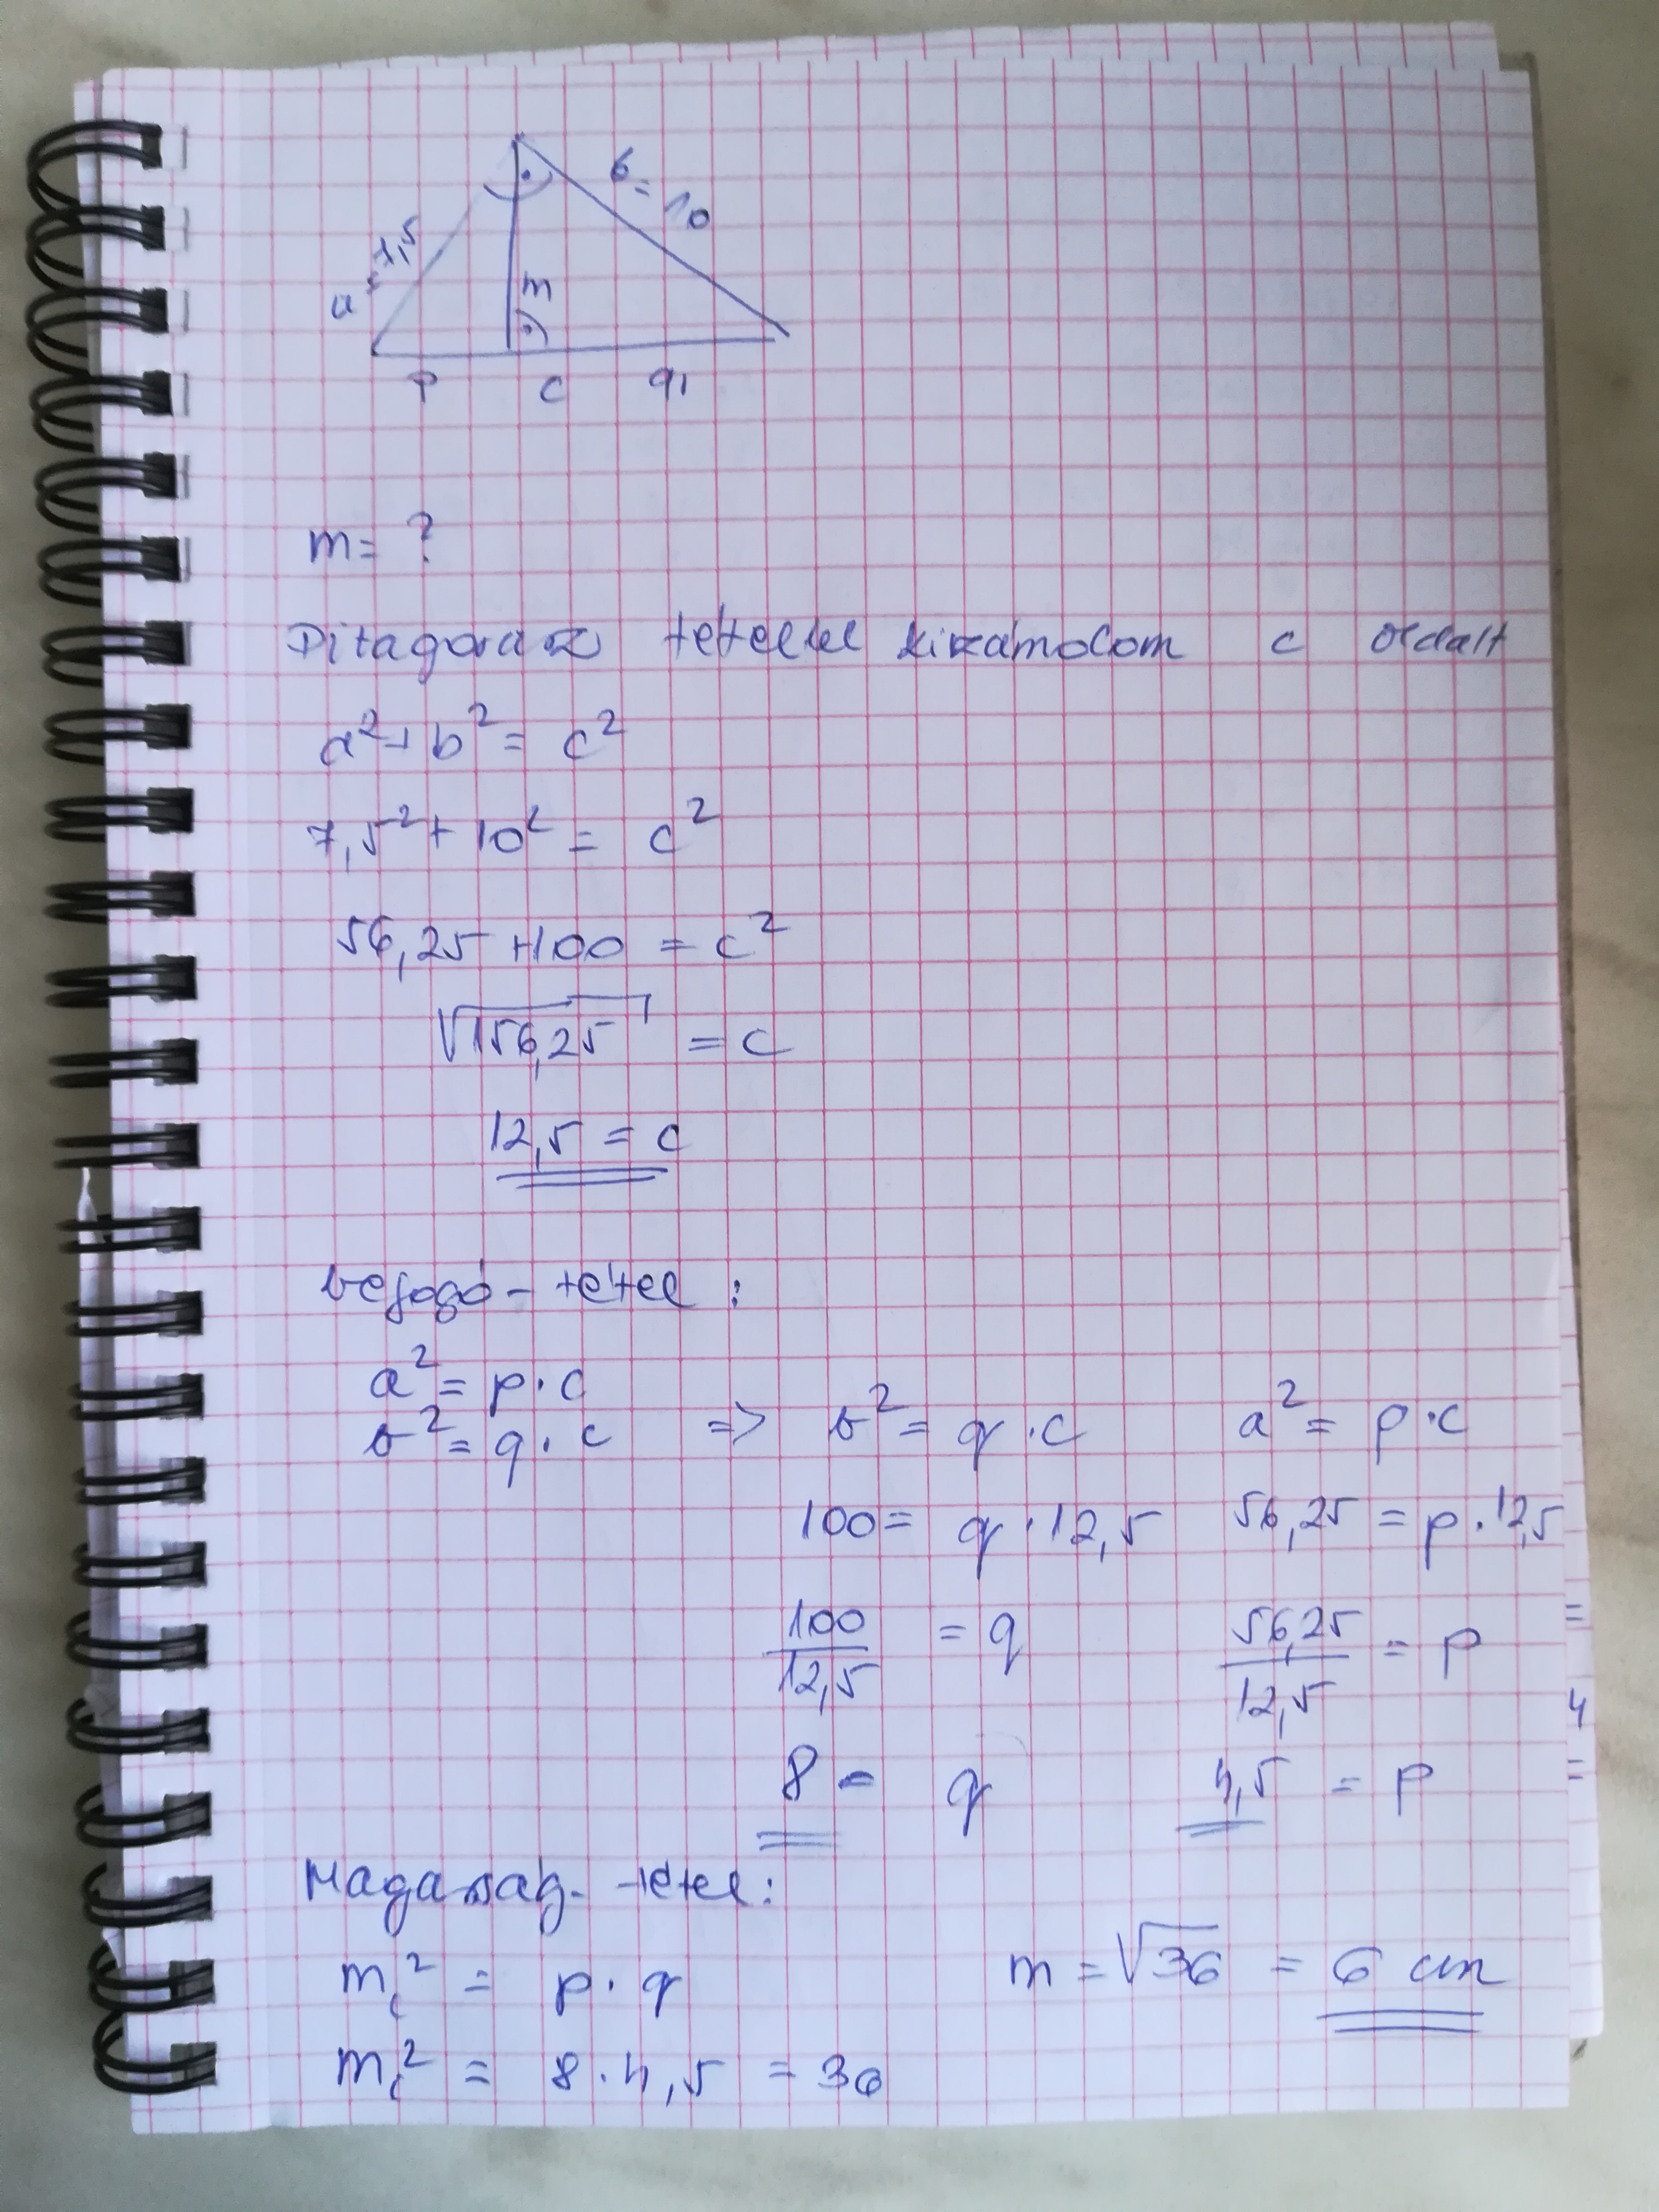 b = 10
a = 7,5
m
p c q
m = ?
Pitagorasz tétellel kiszámolom c oldalt
a² + b² = c²
7,5² + 10² = c²
56,25 + 100 = c²
√156,25 = c
12,5 = c
befogó-tétel:
a² = p · c
b² = q · c => b² = q · c a² = p · c
100 = q · 12,5 56,25 = p · 12,5
100/12,5 = q 56,25/12,5 = p
8 = q 4,5 = p
Magasság-tétel:
m_c² = p · q m = √36 = 6 cm
m_c² = 8 · 4,5 = 36
=
4
=